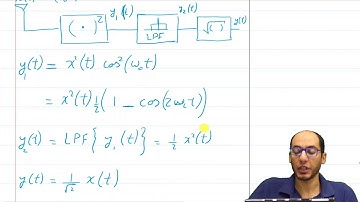 ( · )² y₁(t) LPF y₂(t) √( ) y(t)
y₁(t) = x²(t) cos²(ω₀t)
= x²(t) ½ (1 – cos(2ω₀t))
y₂(t) = LPF { y₁(t) } = ½ x²(t)
y(t) = 1/√2 x(t)